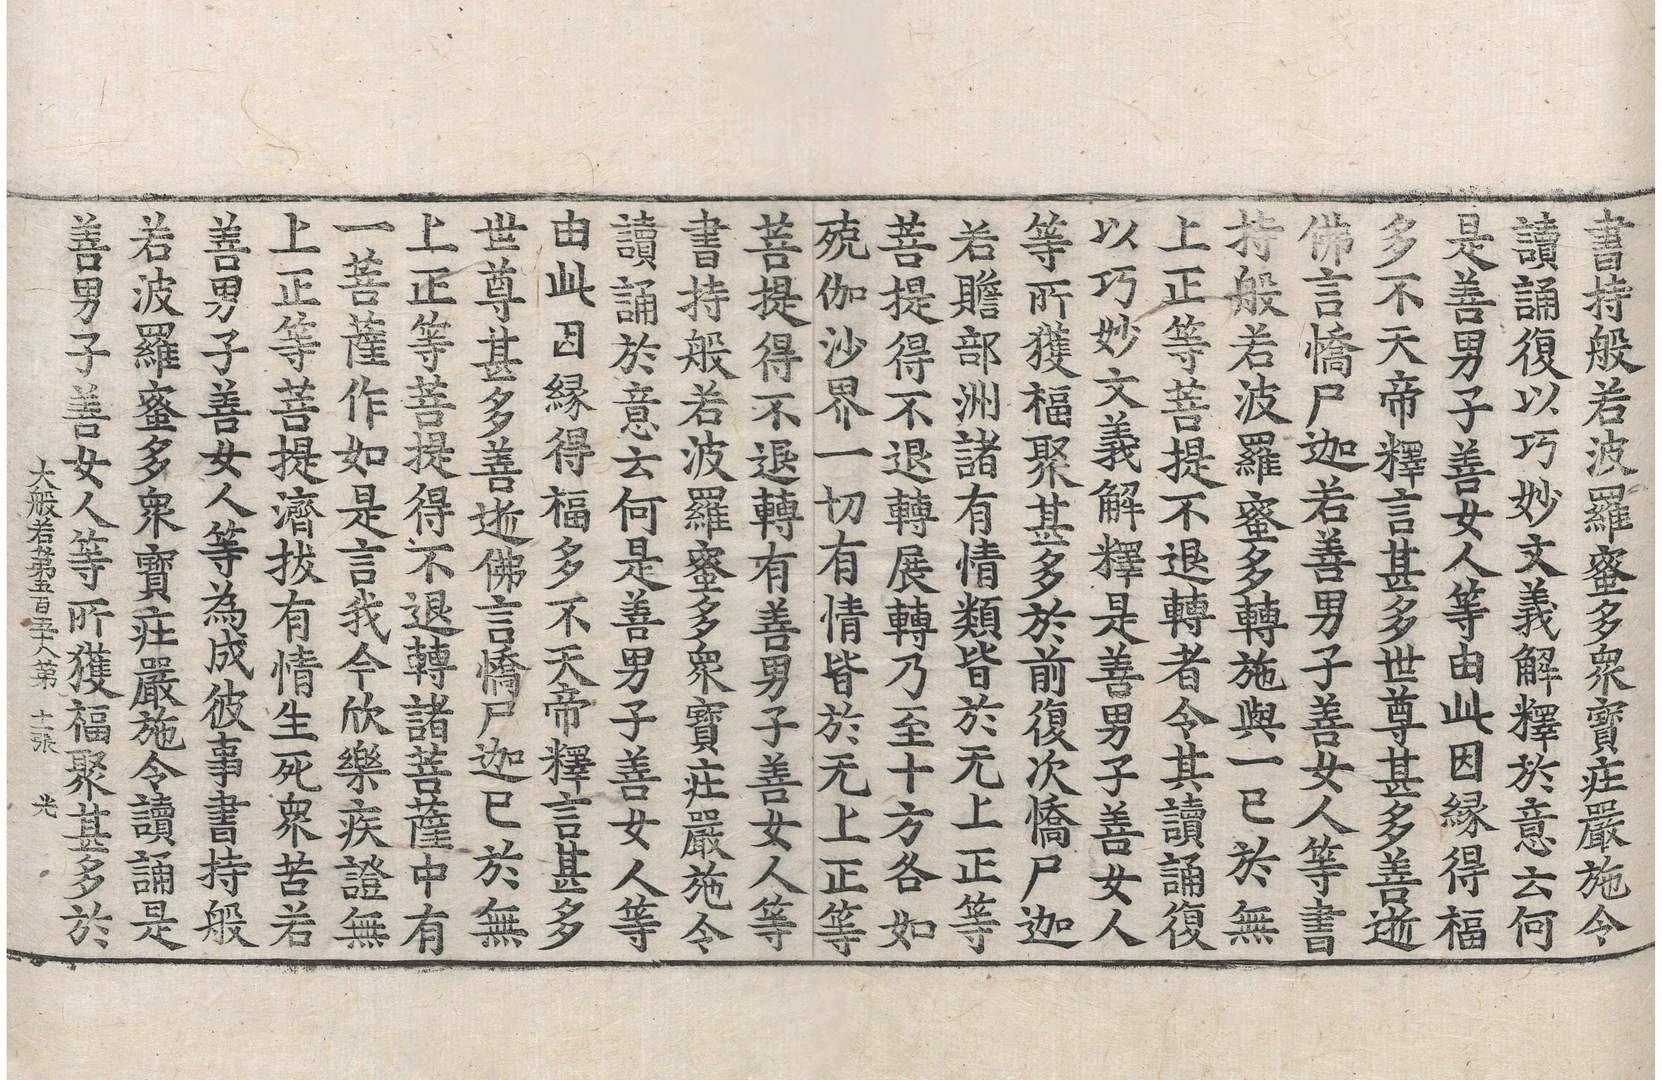 書持般若波羅蜜多衆寶莊嚴施令
讀誦復以巧妙文義解釋於意云何
是善男子善女人等由此因縁得福
多不天帝釋言甚多世尊甚多善逝
佛言憍尸迦若善男子善女人等書
持般若波羅蜜多轉施與一已於無
上正等菩提不退轉者令其讀誦復
以巧妙文義解釋是善男子善女人
等所獲福聚甚多於前復次憍尸迦
若贍部洲諸有情類皆於无上正等
菩提得不退轉展轉乃至十方各如
殑伽沙界一切有情皆於无上正等
菩提得不退轉有善男子善女人等
書持般若波羅蜜多衆寶莊嚴施令
讀誦於意云何是善男子善女人等
由此因縁得福多不天帝釋言甚多
世尊甚多善逝佛言憍尸迦已於無
上正等菩提得不退轉諸菩薩中有
一菩薩作如是言我今欣樂疾證無
上正等菩提濟拔有情生死衆苦若
善男子善女人等為成彼事書持般
若波羅蜜多衆寶莊嚴施令讀誦是
善男子善女人等所獲福聚甚多於
大般若第五百五十八第 十二張 光